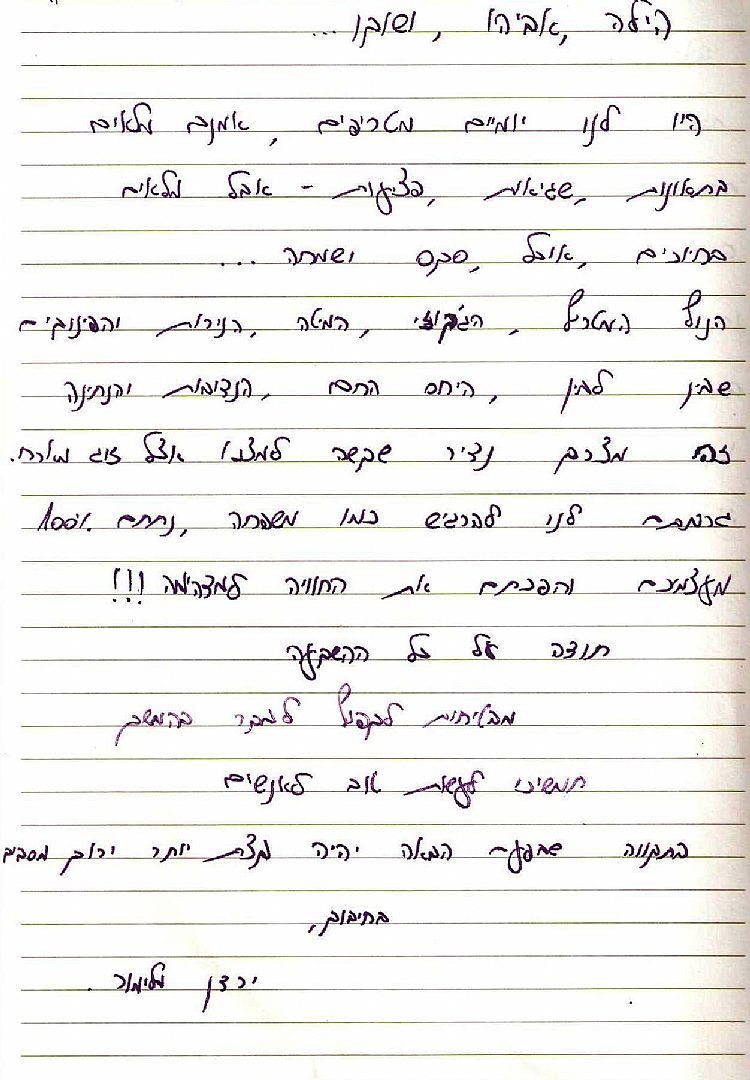 הילה, אביהו, ושוקו...
היו לנו יומיים מטריפים, אמנם מלאים
בתאונות, שגיאות, פציעות - אבל מלאים
בחיוכים, אוכל, סקס ושמחה...
הנוף המטריף, הג'קוזי, המיטה, הנירות והפינוקים -
שבין לבין, היחס החם, הנדיבות והנתינה
זהו מצרך נדיר שקשה למצוא אצל זוג מארח.
גרמתם לנו להרגיש כמו משפחה, נתתם 100%
מעצמכם והפכתם את החוויה למדהימה!!!
תודה על כל ההשקעה
מבטיחות לקפוץ לבקר בהמשך
תמשיכו לעשות טוב לאנשים
בתקווה שהפעם הבאה יהיה קצת יותר ירוק מסביב
בחיבוק,
ירדן ולימור.